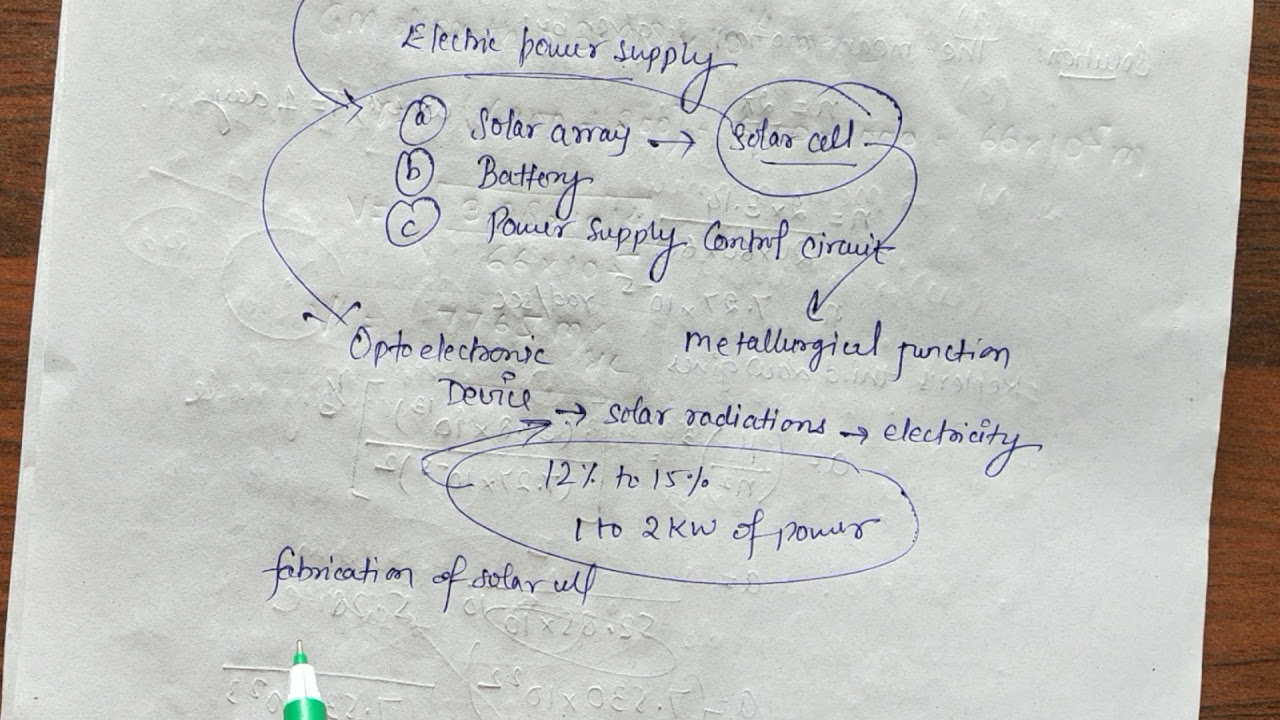 Electric power supply
(a) Solar array → Solar cell
(b) Battery
(c) Power supply control circuit
Optoelectronic metallurgical junction
Device → solar radiations → electricity
12% to 15%
1 to 2 KW of power
fabrication of solar cell